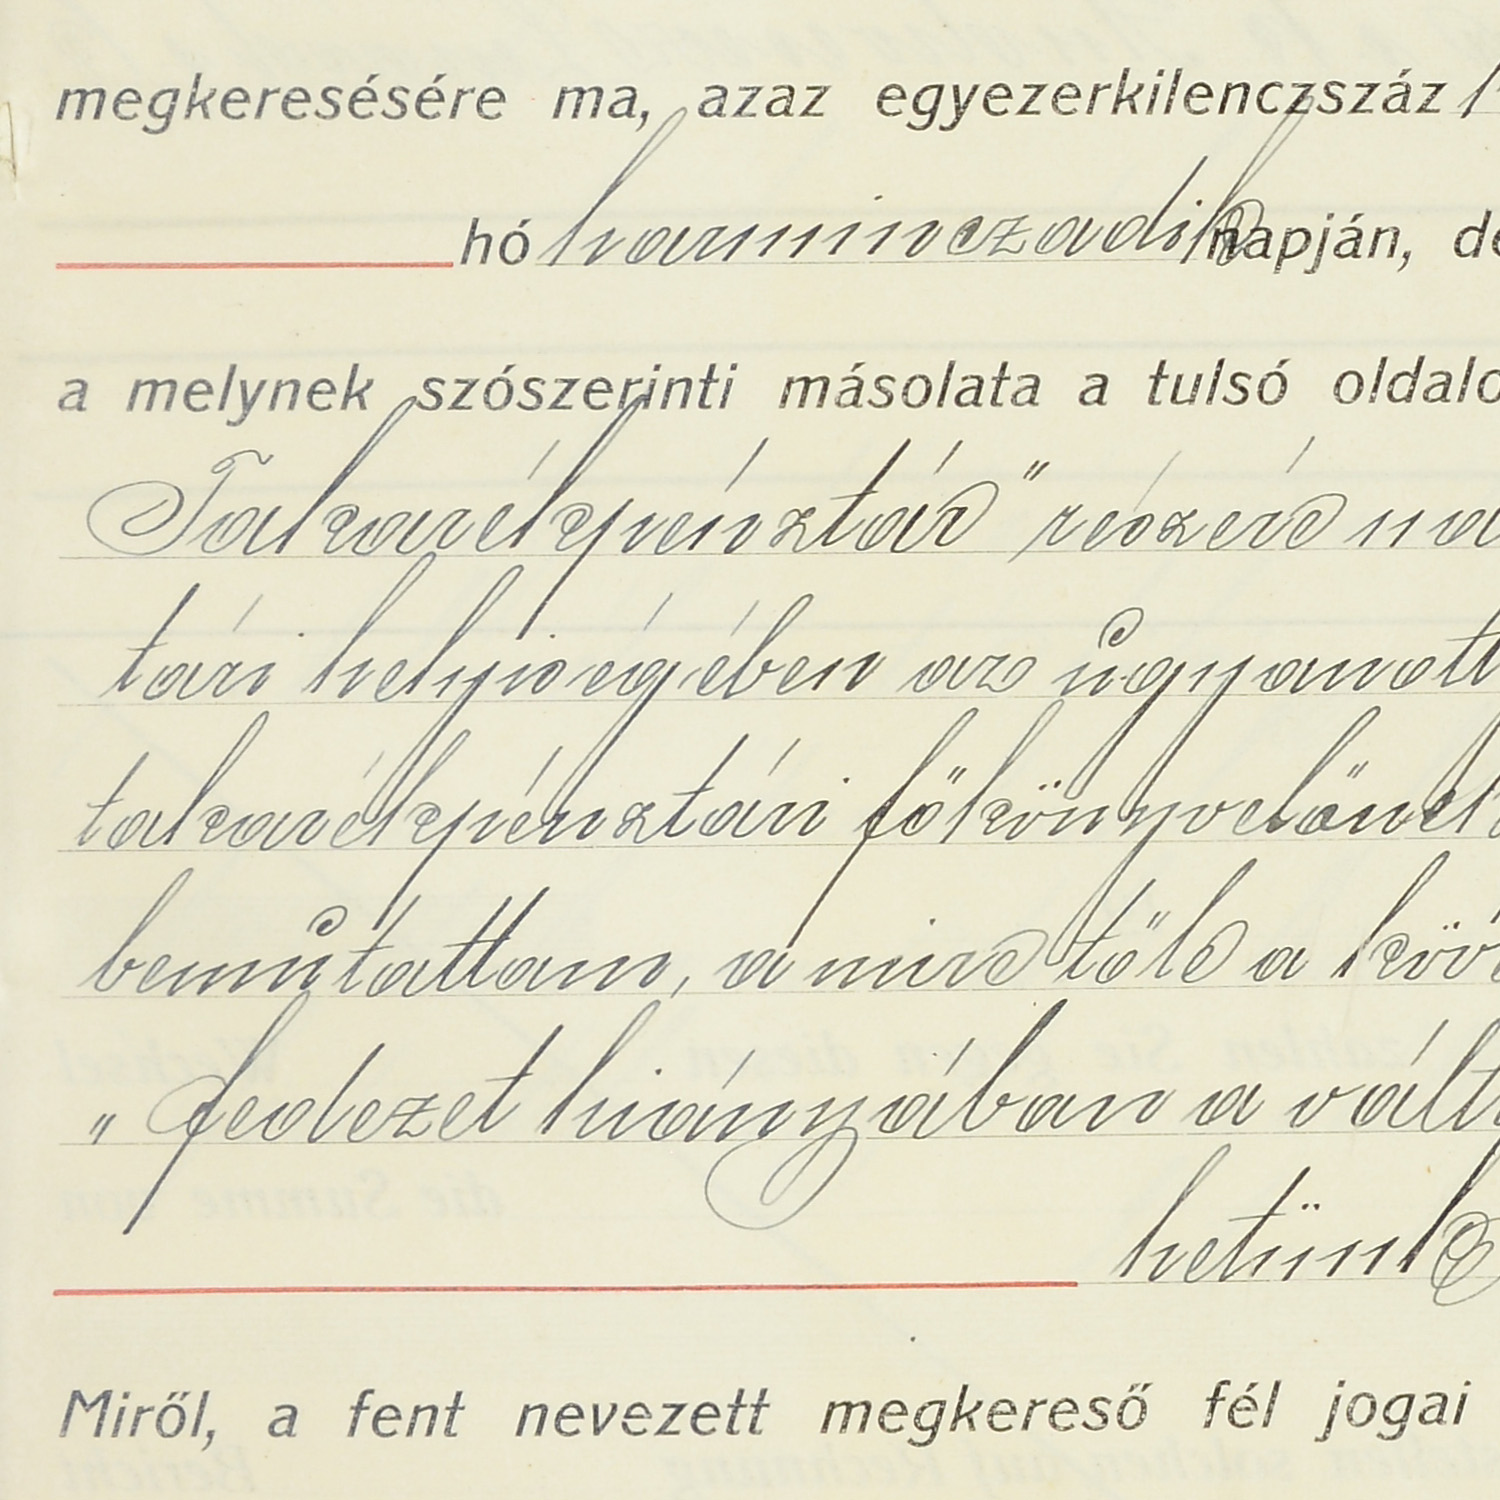 megkeresésére ma, azaz egyezerkilenczszáz
hó harminczadik napján,
a melynek szószerinti másolata a tulsó
Takarékpénztár" részére
tári helyiségében az ugyanott
takarékpénztári főkönyvelőnek
bemutattam, a mire tőle a
"fedezet hiányában a
hetünk
Miről, a fent nevezett megkereső fél jogai